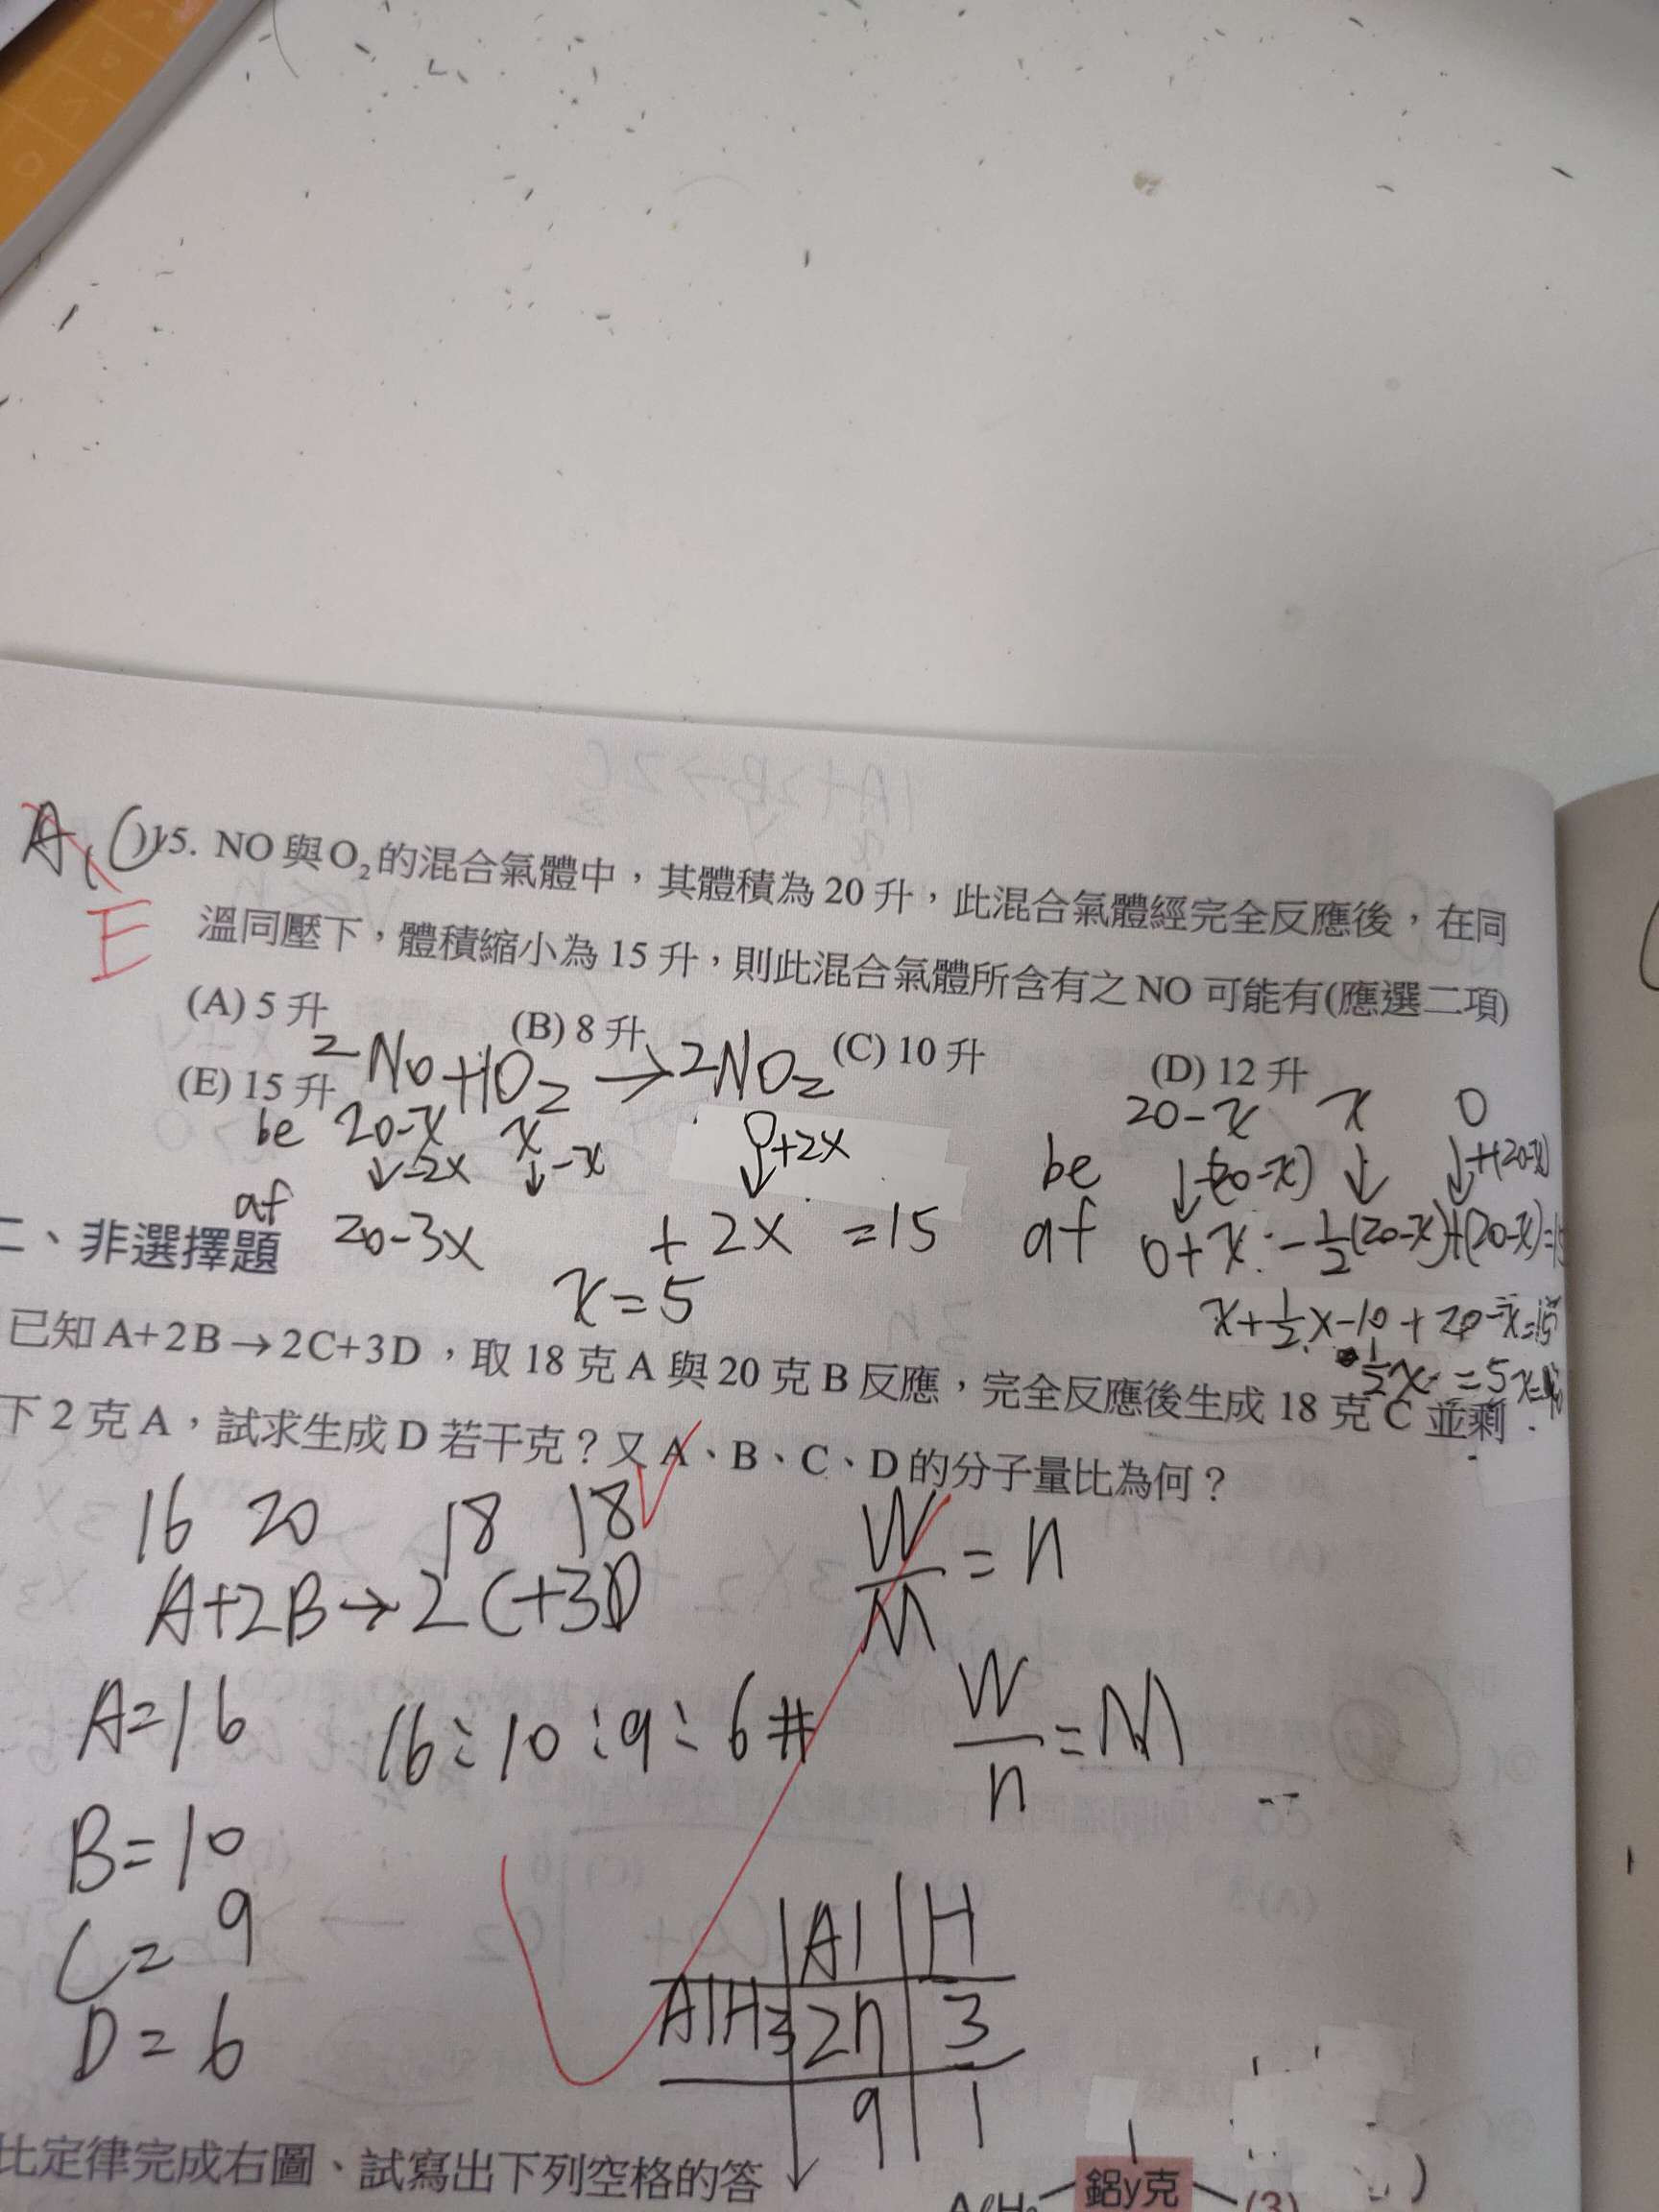 A, C )15. NO與O₂的混合氣體中，其體積為20升，此混合氣體經完全反應後，在同
E 溫同壓下，體積縮小為15升，則此混合氣體所含有之NO可能有(應選二項)
(A) 5升 (B) 8升 (C) 10升 (D) 12升
(E) 15升
2NO+1O₂→2NO₂
be 20-x x 0
↓-2x ↓-x ↓+2x
af 20-3x + 2x =15
x=5
20-x x 0
be ↓-(20-x) ↓ ↓+(20-x)
af 0+x-1/2(20-x)+(20-x)=15
x+1/2x-10+20-x=15
1/2x=5
二、非選擇題
已知A+2B→2C+3D，取18克A與20克B反應，完全反應後生成18克C並剩
下2克A，試求生成D若干克？又A、B、C、D的分子量比為何？
16 20 18 18
A+2B→2C+3D
W/M=n
A=16
16:10:9:6#
W/n=M
B=10
C=9
D=6
Al H
AlH3 2n 3
9 1
比定律完成右圖、試寫出下列空格的答
鋁y克
(3)